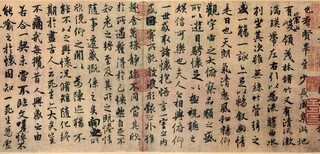 也群賢畢至少長咸集此地
有崇山峻領茂林脩竹又有清流激
湍暎帶左右引以為流觴曲水
列坐其次雖無絲竹管弦之
盛一觴一詠亦足以暢敘幽情
是日也天朗氣清惠風和暢仰
觀宇宙之大俯察品類之盛
所以遊目騁懷足以極視聽之
娛信可樂也夫人之相與俯仰
一世或取諸懷抱悟言一室之內
或因寄所託放浪形骸之外雖
趣舍萬殊靜躁不同當其欣
於所遇蹔得於己怏然自足不
知老之將至及其所之既惓情
隨事遷感慨係之矣向之所
欣俛仰之閒以為陳迹猶不
能不以之興懷況脩短隨化終
期於盡古人云死生亦大矣豈
不痛哉每攬昔人興感之由
若合一契未嘗不臨文嗟悼不
能喻之於懷固知一死生為虛